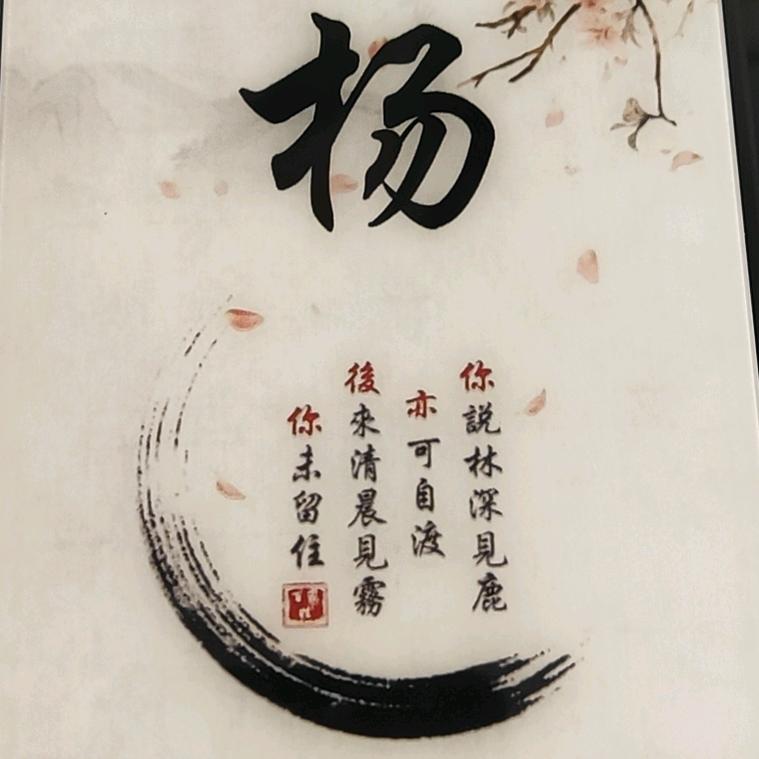 杨
你說林深見鹿
亦可自渡
後來清晨見霧
你未留住